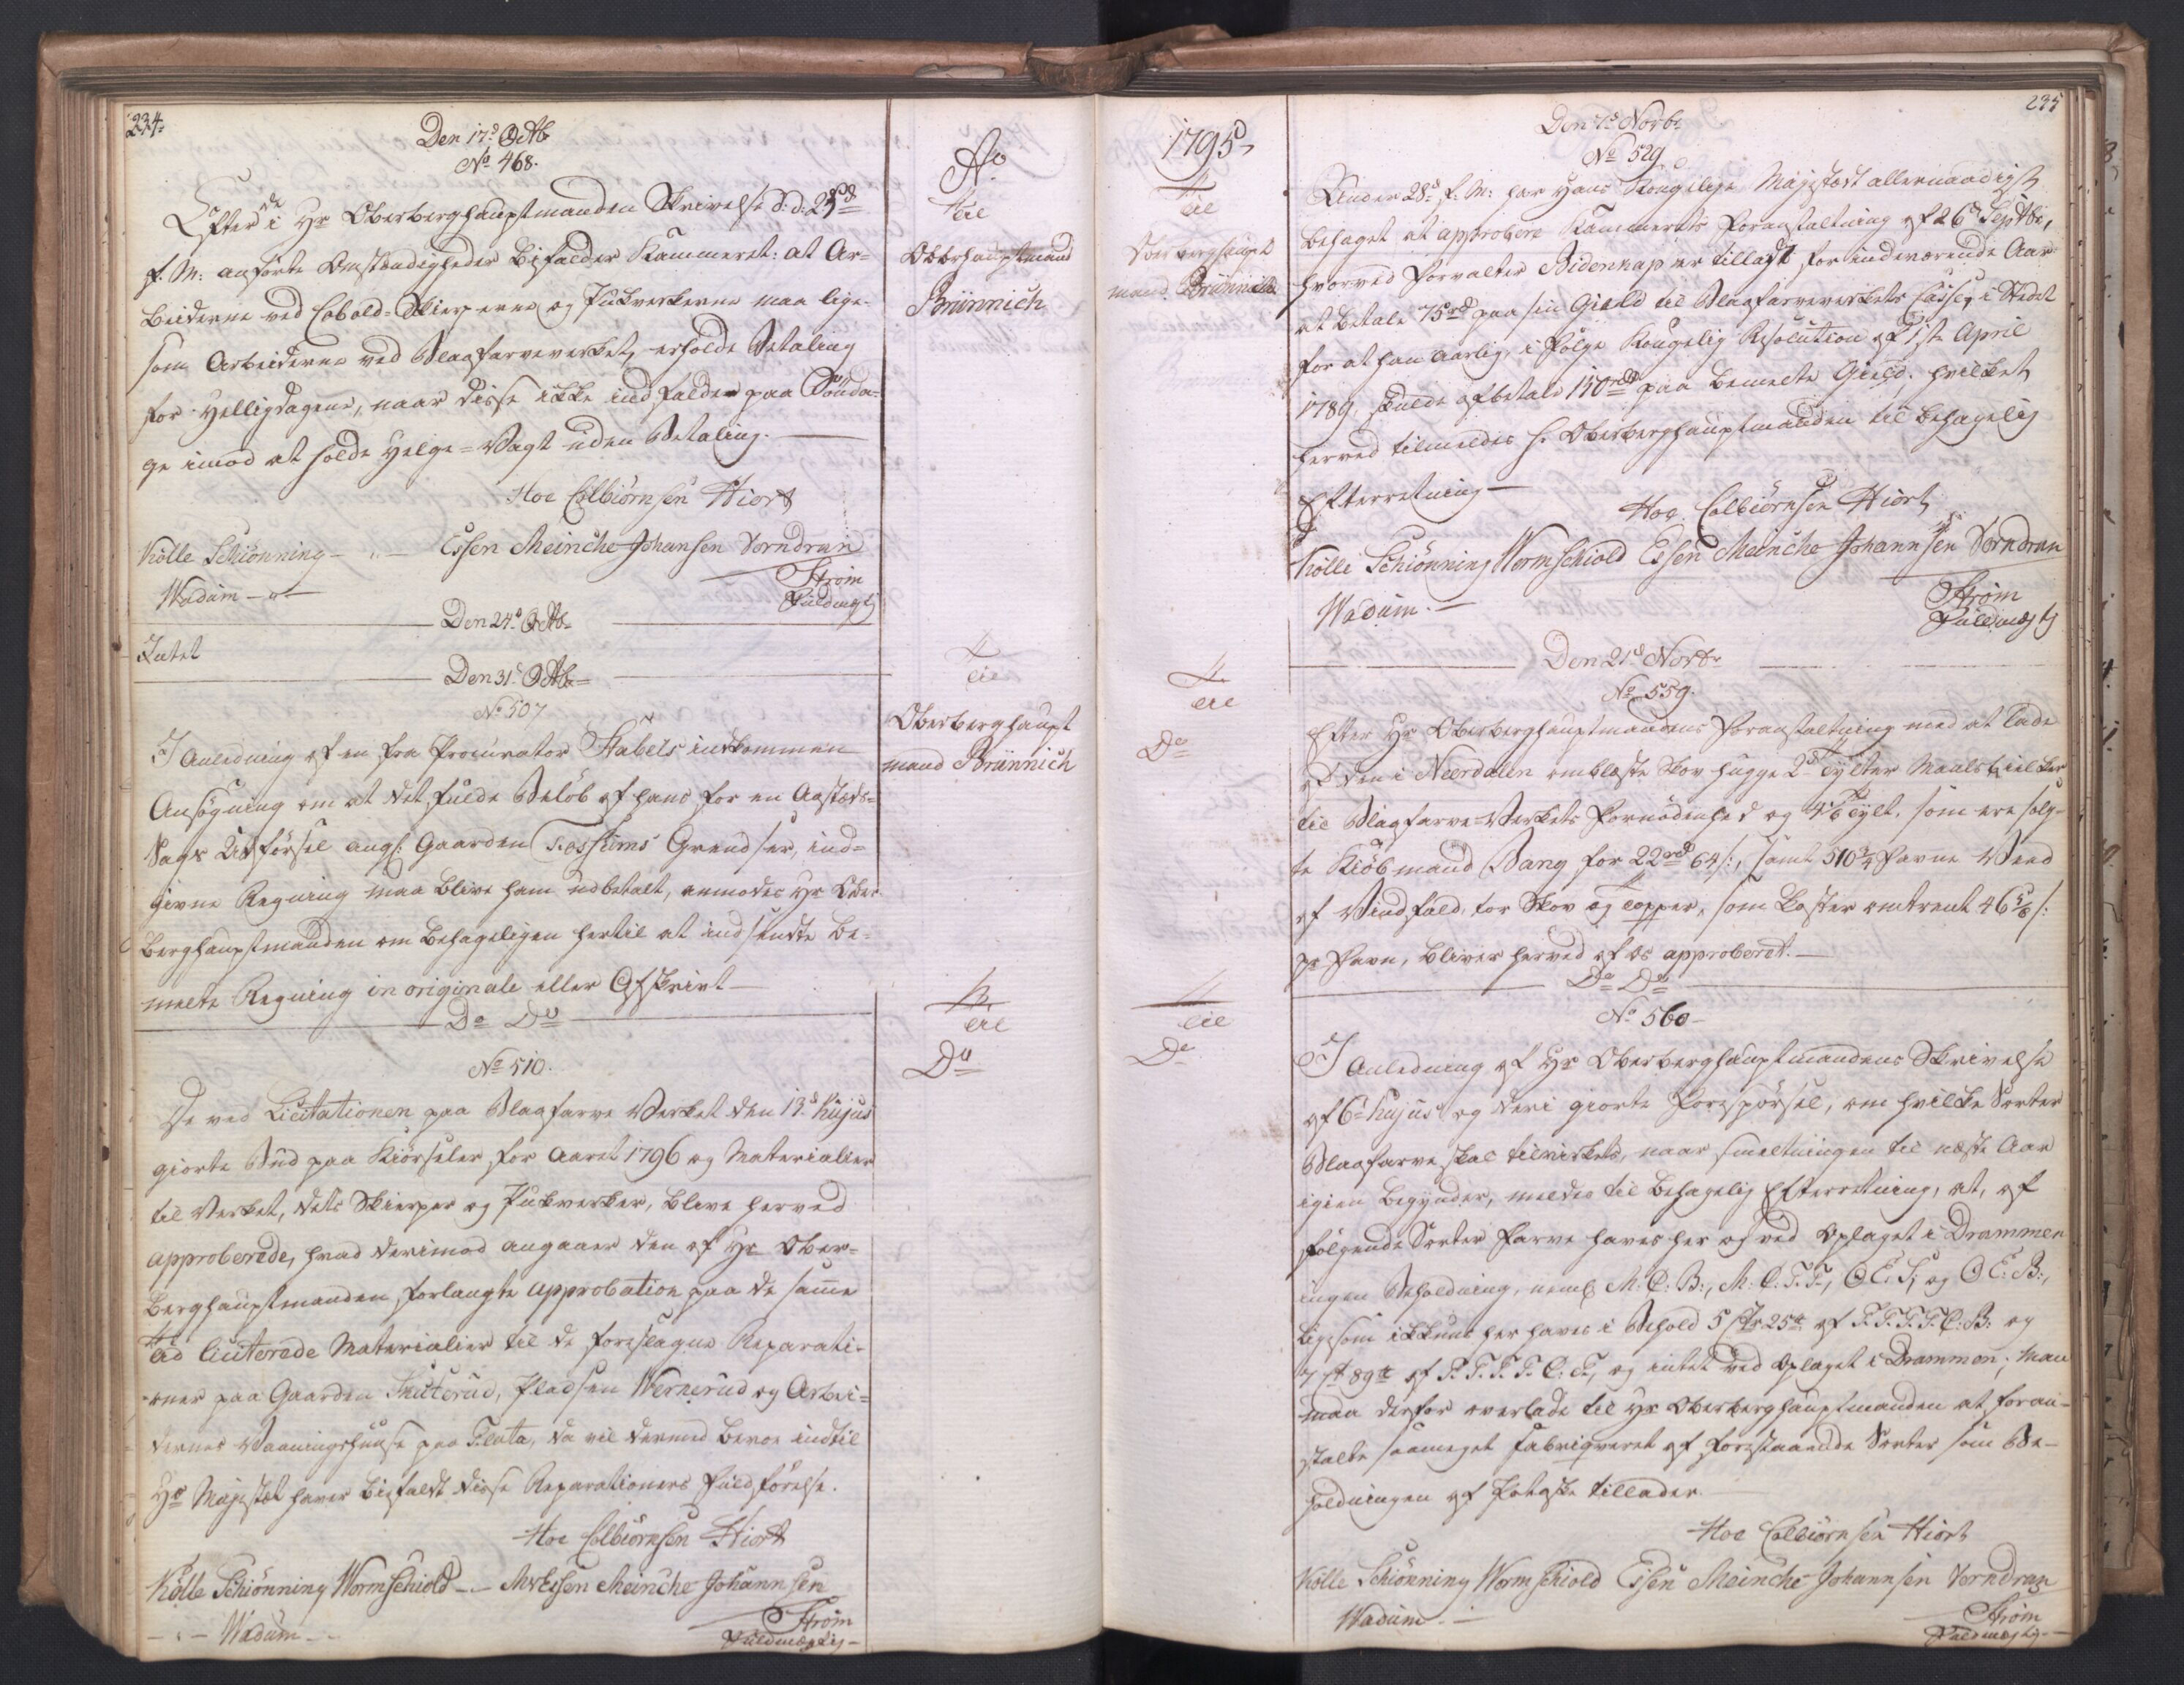 234.
Den 17d Octb
No 468.
Efter de i Hr Oberberghauptmanden Skrivelse d: d: 25d
f. M: anførte Omstændigheder bifalder Kammeret: at Ar=
beiderne ved Cobold=Skierperne og Pukverkerne maa lige=
som Arbeiderne ved Blaafarveverket, erholde Betaling
for Helligdagene, naar disse ikke indfalder paa Sönda=
ge imod at holde Helge=Vagt uden Betaling.
Hoe Colbiörnsen Hiort
Kölle Schiönning - " - Essen Meinche Johansen Vorndran
Wadum - " -
Ström
Fuldmægtig
Den 24d Octb
Intet
Den 31d Octb
No 507
I Anledning af en fra Procurator Stabels indkommen
Ansögning om at det fulde Belöb af hans for en Aasteds=
Sags Udförsel angl: Gaarden Fossums Grendser, ind=
givne Regning maa blive ham udbetalt, anmodes Hr Ober
berghauptmanden om behageligen hertil at indsendte be=
meldte Regning in originale eller Afskrivt
Do Do
No 510.
De ved Licitationen paa Blaafarve Verket den 13d hujus
giorte Bud paa Kiörseler for Aaret 1796 og Materialier
til Verket, dets Skierper og Pukverker, blive herved
approberede, hvad derimod angaaer den af Hr Ober=
berghauptmanden forlangte approbation paa de samme
Tid liciterede Materialier til de foreslagne Reparati=
oner paa Gaarden Skuterud, Pladsen Wernerud og Arbei=
dernes Vaaningshuuse paa Fluta, da vil dermed beroe indtil
Hs Majestæt haver bifaldt disse Reparationers Fuldförelse.
Hoe Colbiörnsen Hiort
Kölle Schiönning Wormschiold - " - Essen Meinche Johannsen
- " - Wadum - "
Ström
Fuldmægtig
Ao
Til
Oberhauptmand
Brünnich
Til
Oberberghaupt
mand Brünnich
Til
Do
1795
Til
Oberberghaupt
mand Brünnich
Til
Do
Til
Do
235
Den 7d Novbr
No 529
Under 28d f. M: har Hans Kongelige Majestæt allernaadigst
behaget at approbere Kammerets Foranstaltning af 26d Septbr,
hvorved Forvalter Bidenkap er tilladt for indeværende Aar
at betale 75rd paa sin Gield til Blaafarveverkets Casse, i Stedet
for at han aarlig, i Fölge Kongelig Resolution af 1ste April
1789, skulde afbetale 150rd paa bemeldte Gield. hvilket
herved tilmeldes Hr Oberberghauptmanden til behagelig
Efterretning
Hoe Colbiörnsen Hiort
Kölle Schiönning Wormschiold Essen Meinche Johannsen Vorndran
Wadum. -
Ström
Fuldmægtig
Den 21d Novbr
No 559.
Efter Hr Oberberghauptmandens Foranstaltning med at lade
af den i Neerdalen omblæste Skov hugge 2de Tylter Maalstielker
til Blaafarve=Verkets Fornödenhed og 4 1/6 Tylt. som ere solg=
te Kiöbmand Bang for 22rd 64 s:, samt 510 3/4 Favne Veed
af Vindfald, tör Skov og Topper, som koster omtrent 46 5/6 s:
pr Favn, bliver herved af os approberet. -
Do Do
No 560
I Anledning af Hr Oberberghauptmandens Skrivelse
af 6d hujus og deri giorte Forespörsel, om hvilke Sorter
Blaafarve skal tilvirkes, naar smeltningen til næste Aar
igien begynder, meldes til behagelig Efterretning, at, af
fölgende Sorter Farve haves her og ved Oplaget i Drammen
ingen Beholdning, neml: M. C. B:, M. C. F. F., O E. S, og O E: B:,
ligesom ikkuns her haves i Behold 5 Ctr 25 lb af F. F. F. F. C: B: og
7 Ctr 89 lb af F. F. F. F. C: F., og intet ved Oplaget i Drammen; Man
maa derfor overlade til Hr Oberberghauptmanden at foran=
stalte saameget fabriqveret af forestaaende Sorter som Be=
holdningen af Potaske tillader.
Hoe Colbiörnsen Hiort
Kölle Schiönning Wormschiold Essen Meinche Johannsen Vorndran
Wadum. -
Ström
Fuldmægtig